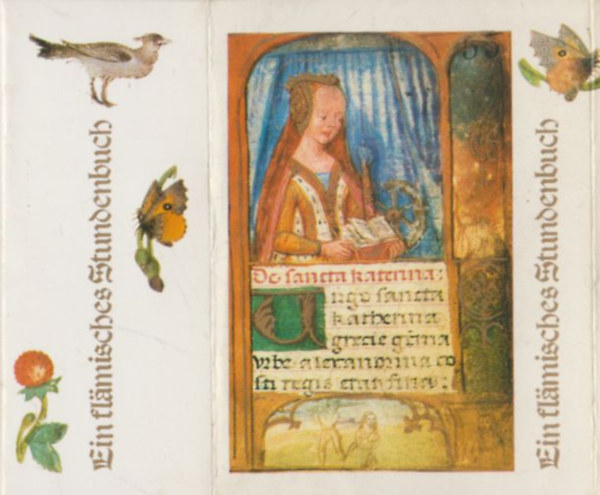 Ein flämisches Stundenbuch
De sancta katerina:
Uirgo sancta
katherina
grecie gēma
vrbe alexandrina co
sti regis erat filia:
Ein flämisches Stundenbuch